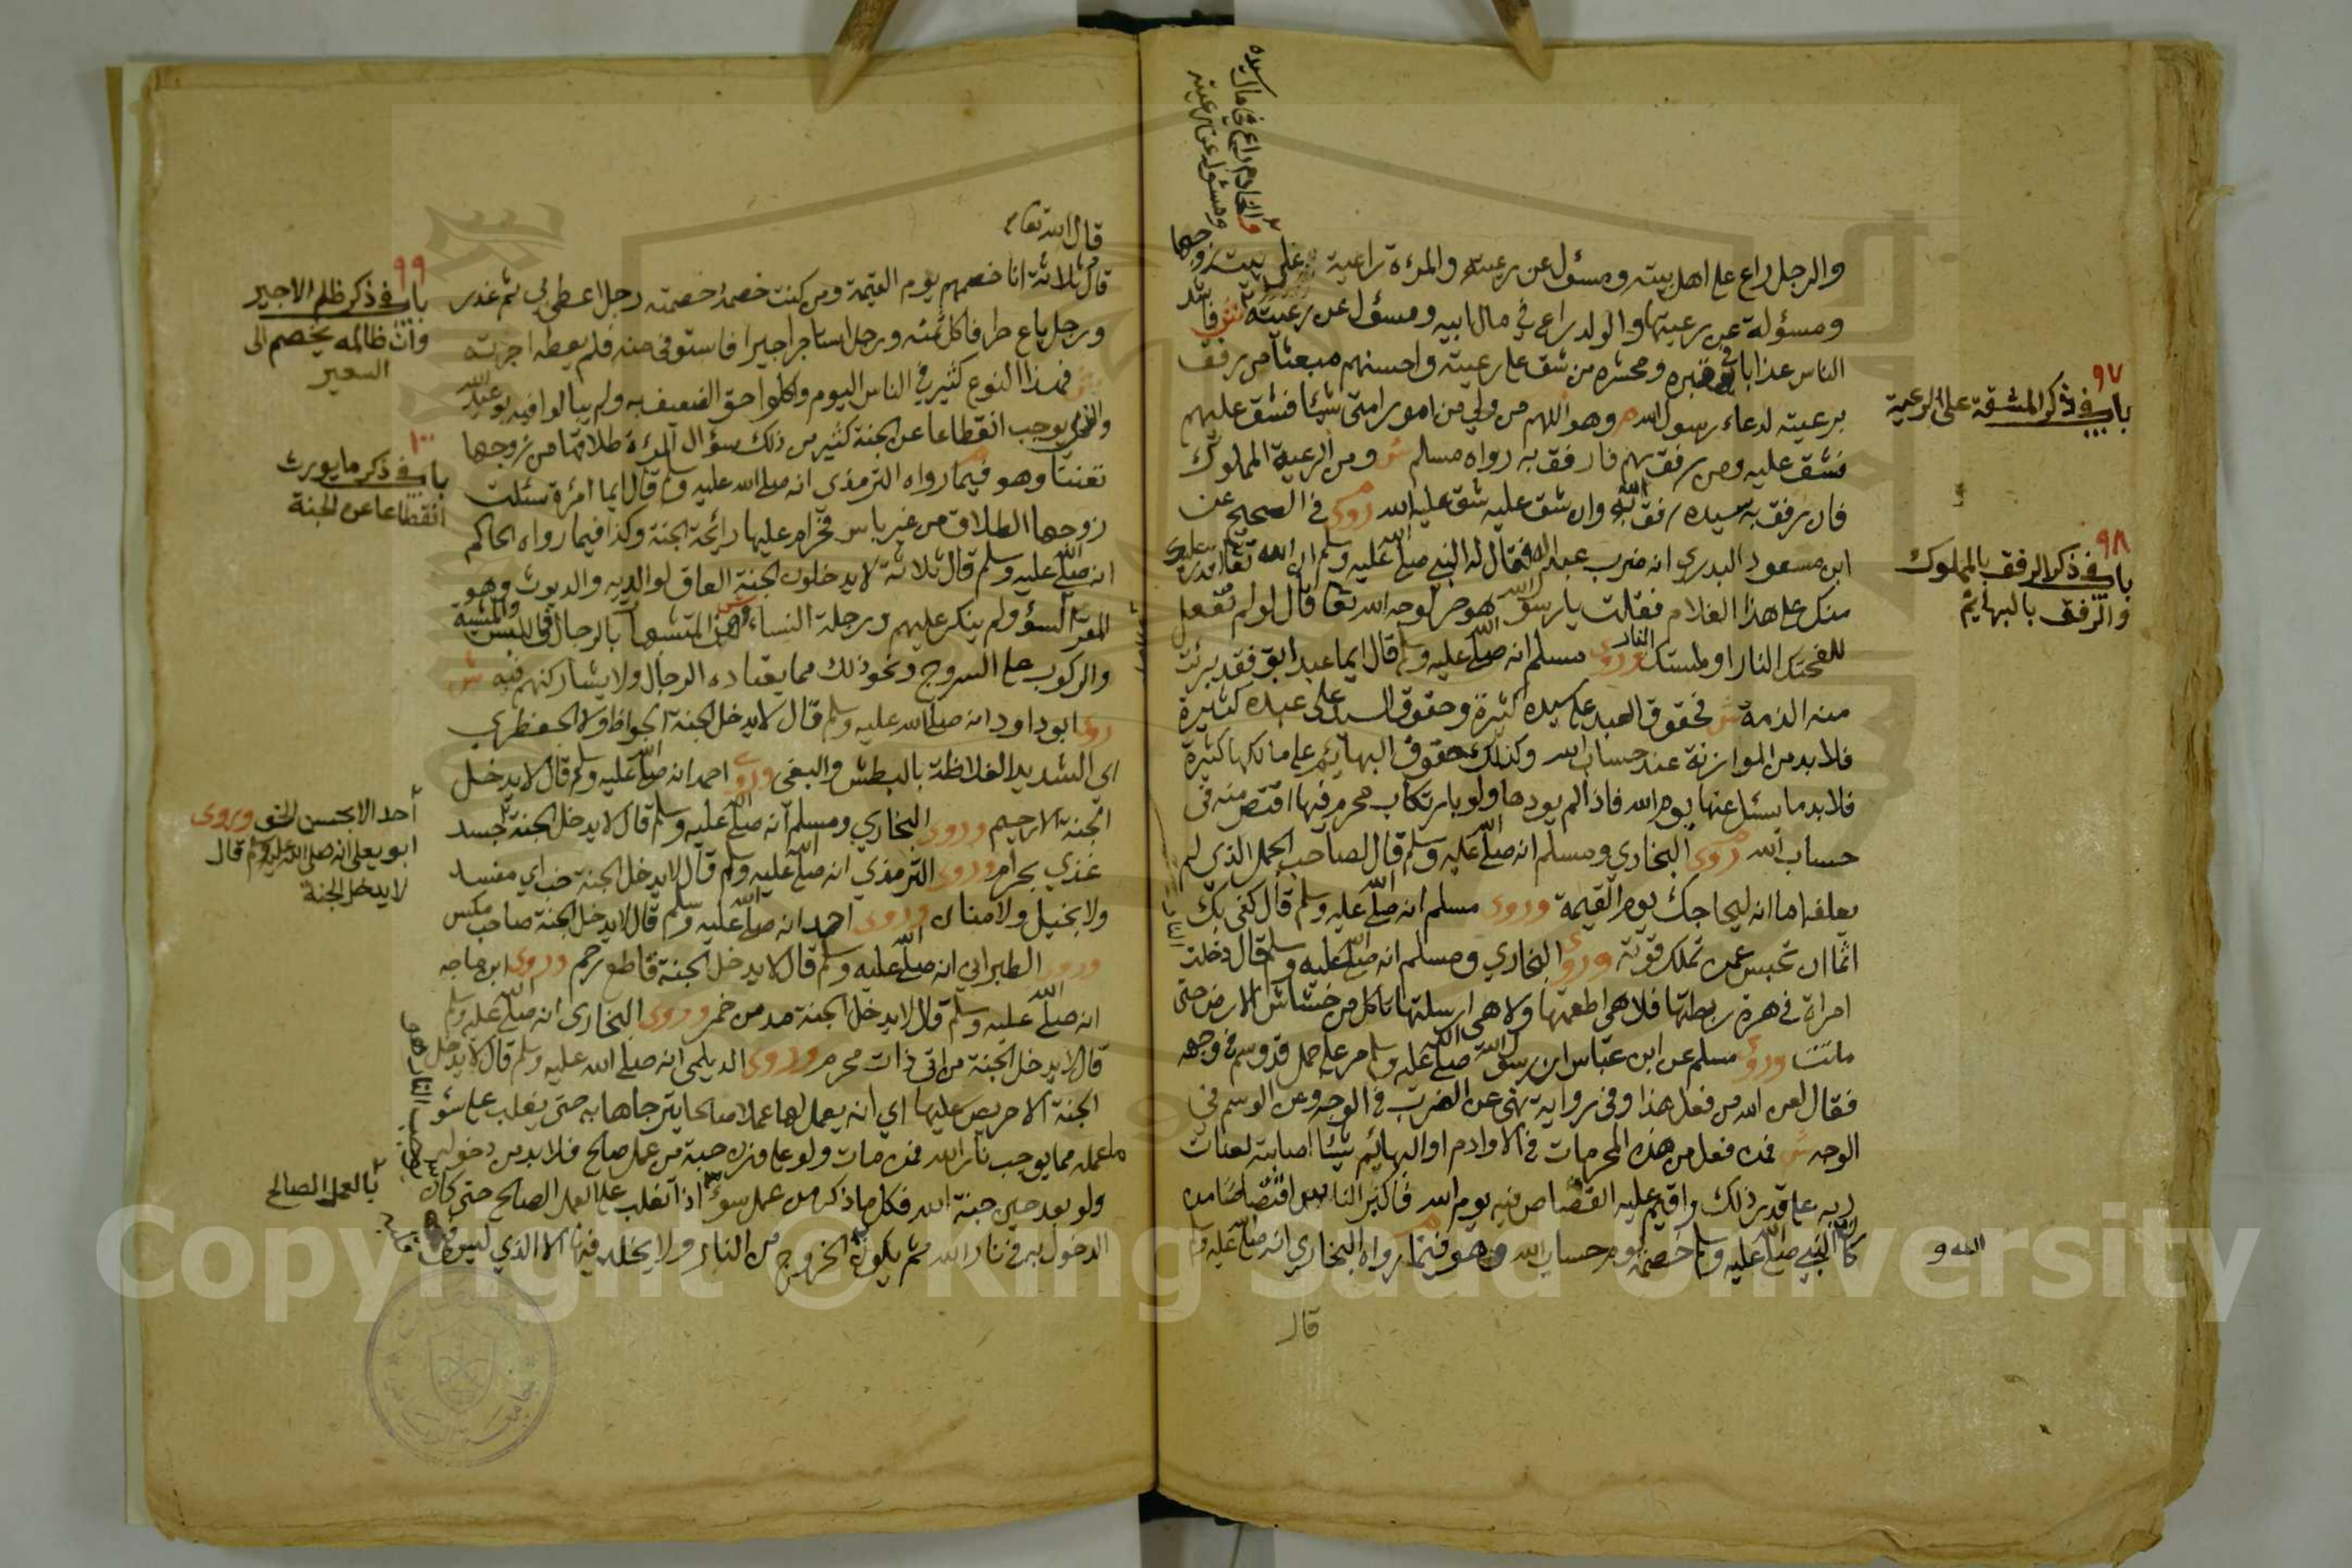 والخادم راع في مال سيده
ومسئول عن رعيته
والرجل راع على اهل بيته ومسؤل عن رعيته والمرءة راعية على بيت زوجها
ومسؤلة عن رعيتها والولد راع في مال ابيه ومسؤل عن رعيته ش فاشد
الناس عذابا في قبره ومحشره من شق على رعيته واحسنهم مبعثا من رفق
برعيته لدعاء رسول الله وهو اللهم من ولي من امور امتى شيئا فشق عليهم
فشق عليه ومن رفق بهم فارفق به رواه مسلم ش ومن الرعية المملوك
فان رفق به سيده رفق الله به وان شق عليه شق عليه الله روى في الصحيح عن
ابن مسعود البدري انه ضرب عبدا له فقال له النبي صلى الله عليه وسلم ان الله تعالى اقدر عليك
منك على هذا الغلام فقلت يا رسول الله هو حر لوجه الله تعا قال لو لم تفعل
للفحتك النار او لمستك النار وروى مسلم انه صلى الله عليه وسلم قال ايما عبد ابق فقد برئت
منه الذمة ش فحقوق العبد على سيده كثيرة وحقوق السيد على عبده كثيرة
فلا بد من الموازنة عند حساب الله وكذلك حقوق البهايم على مالكها كثيرة
فلا بد ما يسئل عنها يوم الله فاذا لم يودها ولو بارتكاب محرم فيها اقتص منه في
حساب الله روى البخاري ومسلم انه صلى الله عليه وسلم قال لصاحب الجمل الذي لم
يعلفه اما انه ليحاجك يوم القيمة وروى مسلم انه صلى الله عليه وسلم قال كفى بك
اثما ان تحبس عمن تملك قوته وروى البخاري ومسلم انه صلى الله عليه وسلم قال دخلت
امراة في هرة ربطتها فلا هي اطعمتها ولا هي ارسلتها تاكل من خشاش الارض حتى
ماتت وروى مسلم عن ابن عباس ان رسول الله صلى الله عليه وسلم مر على حمل قد وسم في وجهه
فقال لعن الله من فعل هذا وفي رواية نهى عن الضرب في الوجه وعن الوسم في
الوجه ش فمن فعل من هذه المحرمات في الاوادم او البهائم شيئا اصابته لعنات
ربه على قدر ذلك واقيم عليه القصاص فيه يوم الله فاكثر الناس اقتصاصا من
كان النبي صلى الله عليه وسلم خصمه يوم حساب الله وهو فيما رواه البخاري انه صلى الله عليه وسلم
قال
٩٧
باب في ذكر المشقة على الرعية
٩٨
باب في ذكر الرفق بالمملوك
والرفق بالبهايم
قال الله تعا
قال ثلاثة انا خصمهم يوم القيمة ومن كنت خصمه خصمته رجل اعطى بي ثم غدر
ورجل باع حرا فاكل ثمنه ورجل استاجر اجيرا فاستوفى منه فلم يعطه اجرته
ش فهذا النوع كثير في الناس اليوم واكلوا حق الضعيف به ولم يبالوا فيه بوعيد الله
والذي يوجب انقطاعا عن الجنة كثير من ذلك سؤال المرءة طلاقها من زوجها
تعنتا وهو فيما رواه الترمذي انه صلى الله عليه وسلم قال ايما امرءة سئلت
زوجها الطلاق من غير باس فحرام عليها رائحة الجنة وكذا فيما رواه الحاكم
انه صلى الله عليه وسلم قال ثلاثة لا يدخلون الجنة العاق لوالديه والديوث وهو
المقر السؤ ولم ينكر عليهم ورجلة النساء وهن المتشبها بالرجال في اللبس والمشية
والركوب على السروج ونحو ذلك مما يعتاده الرجال ولا يشاركنهم فيه ش
روى ابو داود انه صلى الله عليه وسلم قال لا يدخل الجنة الجواظ ولا الجعظري
اي الشديد الغلاظة بالبطش والبغي وروى احمد انه صلى الله عليه وسلم قال لا يدخل
الجنة الا رحيم وروى البخاري ومسلم انه صلى الله عليه وسلم قال لا يدخل الجنة جسد
غذي بحرام وروى الترمذي انه صلى الله عليه وسلم قال لا يدخل الجنة خب اي مفسد
ولا بخيل ولا منان وروى احمد انه صلى الله عليه وسلم قال لا يدخل الجنة صاحب مكس
وروى الطبراني انه صلى الله عليه وسلم قال لا يدخل الجنة قاطع رحم وروى ابن ماجه
انه صلى الله عليه وسلم قال لا يدخل الجنة مدمن خمر وروى البخاري انه صلى الله عليه وسلم
قال لا يدخل الجنة من اتى ذات محرم وروى الديلمي انه صلى الله عليه وسلم قال لا يدخل
الجنة الا حريص عليها اي انه يعمل لها عملا صالحا يترجاها به حتى يغلب على سؤ
ما عمله مما يوجب نار الله فمن مات ولو على وزن حبة من عمل صالح فلا بد من دخوله
ولو بعد حين جنة الله فكل ما ذكر من عمل سوء اذا تغلب على العمل الصالح حتى كان
الدخول به في نار الله ثم يكون الخروج من النار ولا يخلد فيها الا الذي ليس
٩٩
باب في ذكر ظلم الاجير
وان ظالمه يخصم الى
السعير
١٠٠
باب في ذكر ما يورث
انقطاعا عن الجنة
أحد الا بحسن الخلق وروى
ابو يعلى انه صلى الله عليه وسلم قال
لا يدخل الجنة
بالعمل الصالح
Copyright © King Saud University